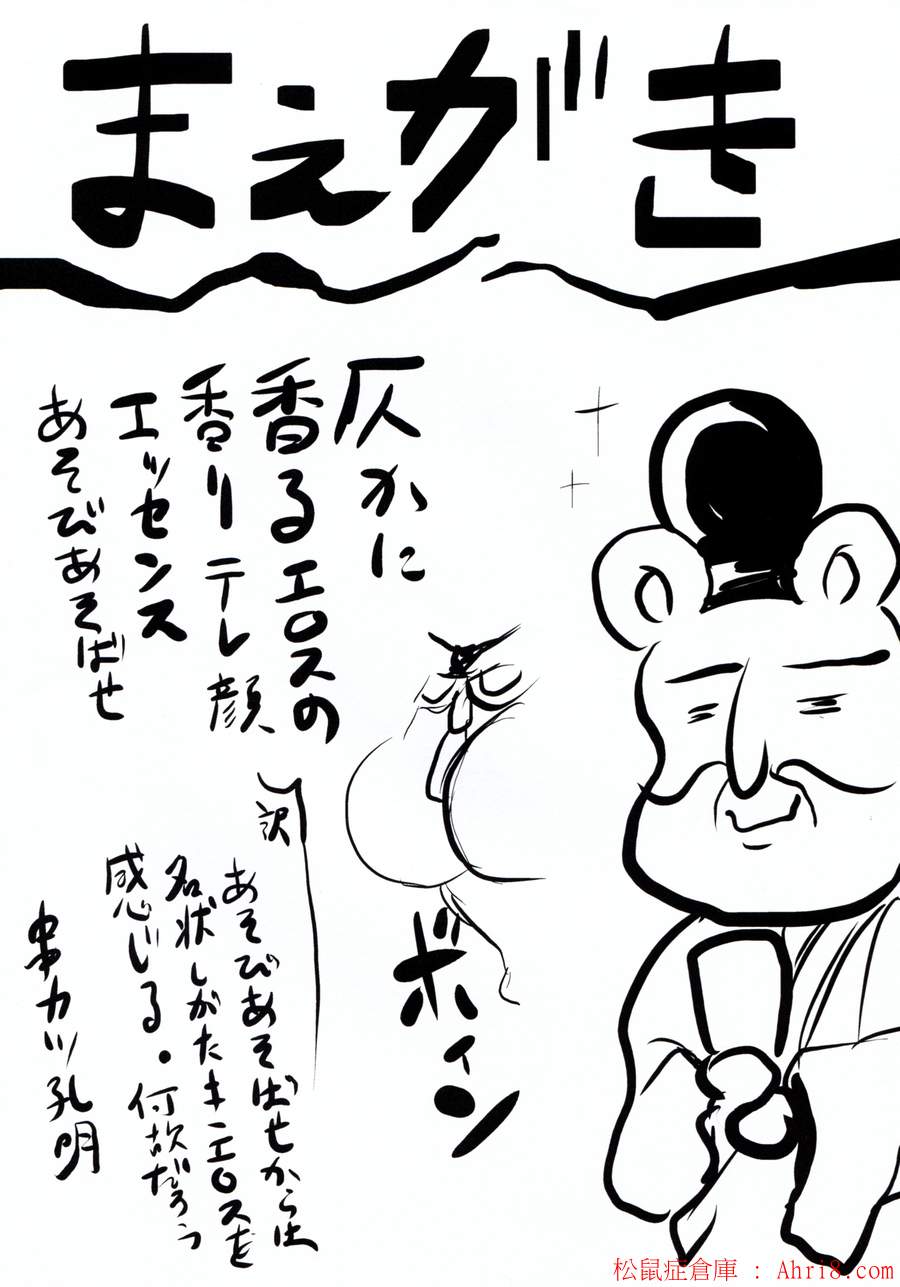 まえがき
仄かに
香るエロスの
香りテレ顔
エッセンス
あそびあそばせ
訳
あそびあそばせからは
名状しがたきエロスを
感じる。何故だろう
串カツ孔明
ボイン
松鼠症倉庫 : Ahri8.com